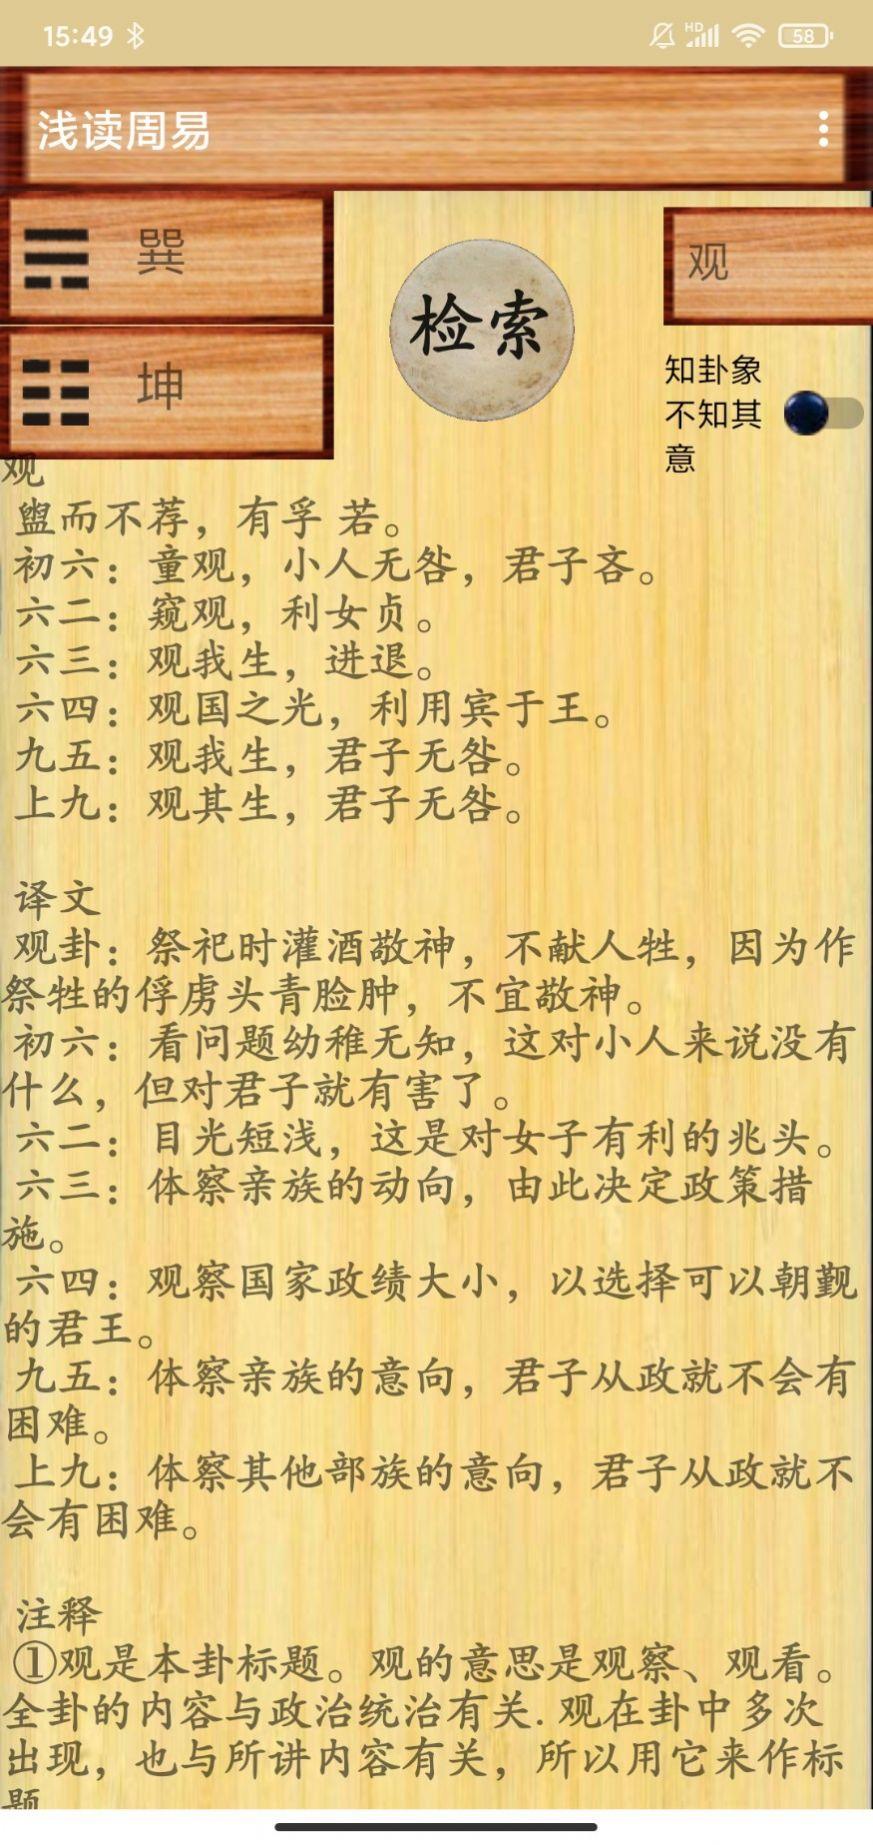 15:49
HD
58
浅读周易
巽
检索
观
坤
知卦象
不知其
意
观
盥而不荐，有孚 若。
初六：童观，小人无咎，君子吝。
六二：窥观，利女贞。
六三：观我生，进退。
六四：观国之光，利用宾于王。
九五：观我生，君子无咎。
上九：观其生，君子无咎。
译文
观卦：祭祀时灌酒敬神，不献人牲，因为作
祭牲的俘虏头青脸肿，不宜敬神。
初六：看问题幼稚无知，这对小人来说没有
什么，但对君子就有害了。
六二：目光短浅，这是对女子有利的兆头。
六三：体察亲族的动向，由此决定政策措
施。
六四：观察国家政绩大小，以选择可以朝觐
的君王。
九五：体察亲族的意向，君子从政就不会有
困难。
上九：体察其他部族的意向，君子从政就不
会有困难。
注释
①观是本卦标题。观的意思是观察、观看。
全卦的内容与政治统治有关.观在卦中多次
出现，也与所讲内容有关，所以用它来作标
题